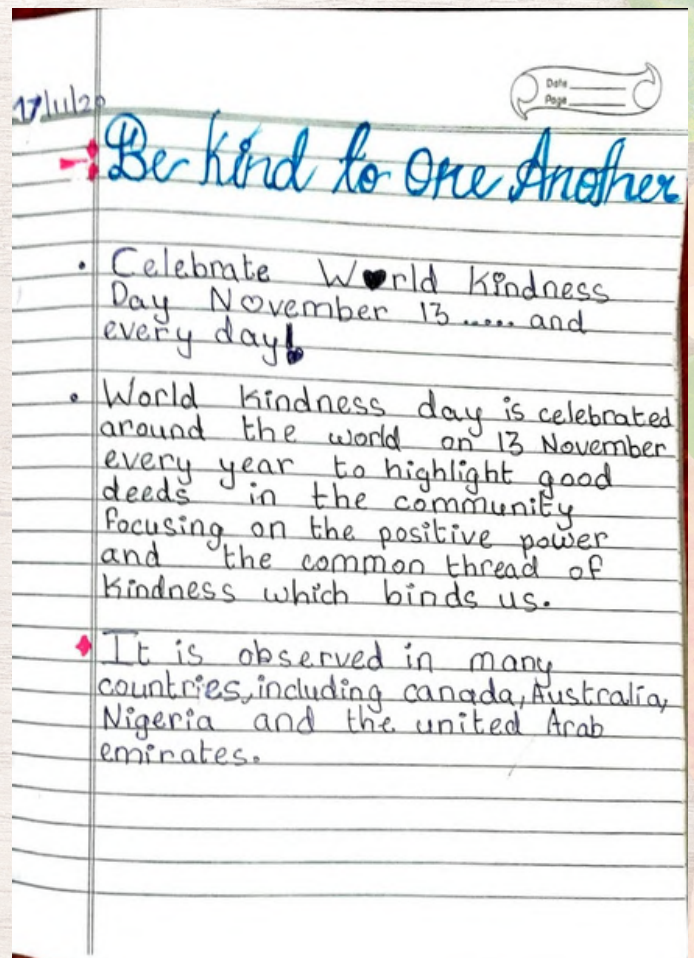 Date
Page
17/11/20
Be Kind to One Another
• Celebrate World Kindness
Day November 13 ..... and
every day!
• World Kindness day is celebrated
around the world on 13 November
every year to highlight good
deeds in the community
focusing on the positive power
and the common thread of
Kindness which binds us.
It is observed in many
countries, including canada, Australia,
Nigeria and the united Arab
emirates.